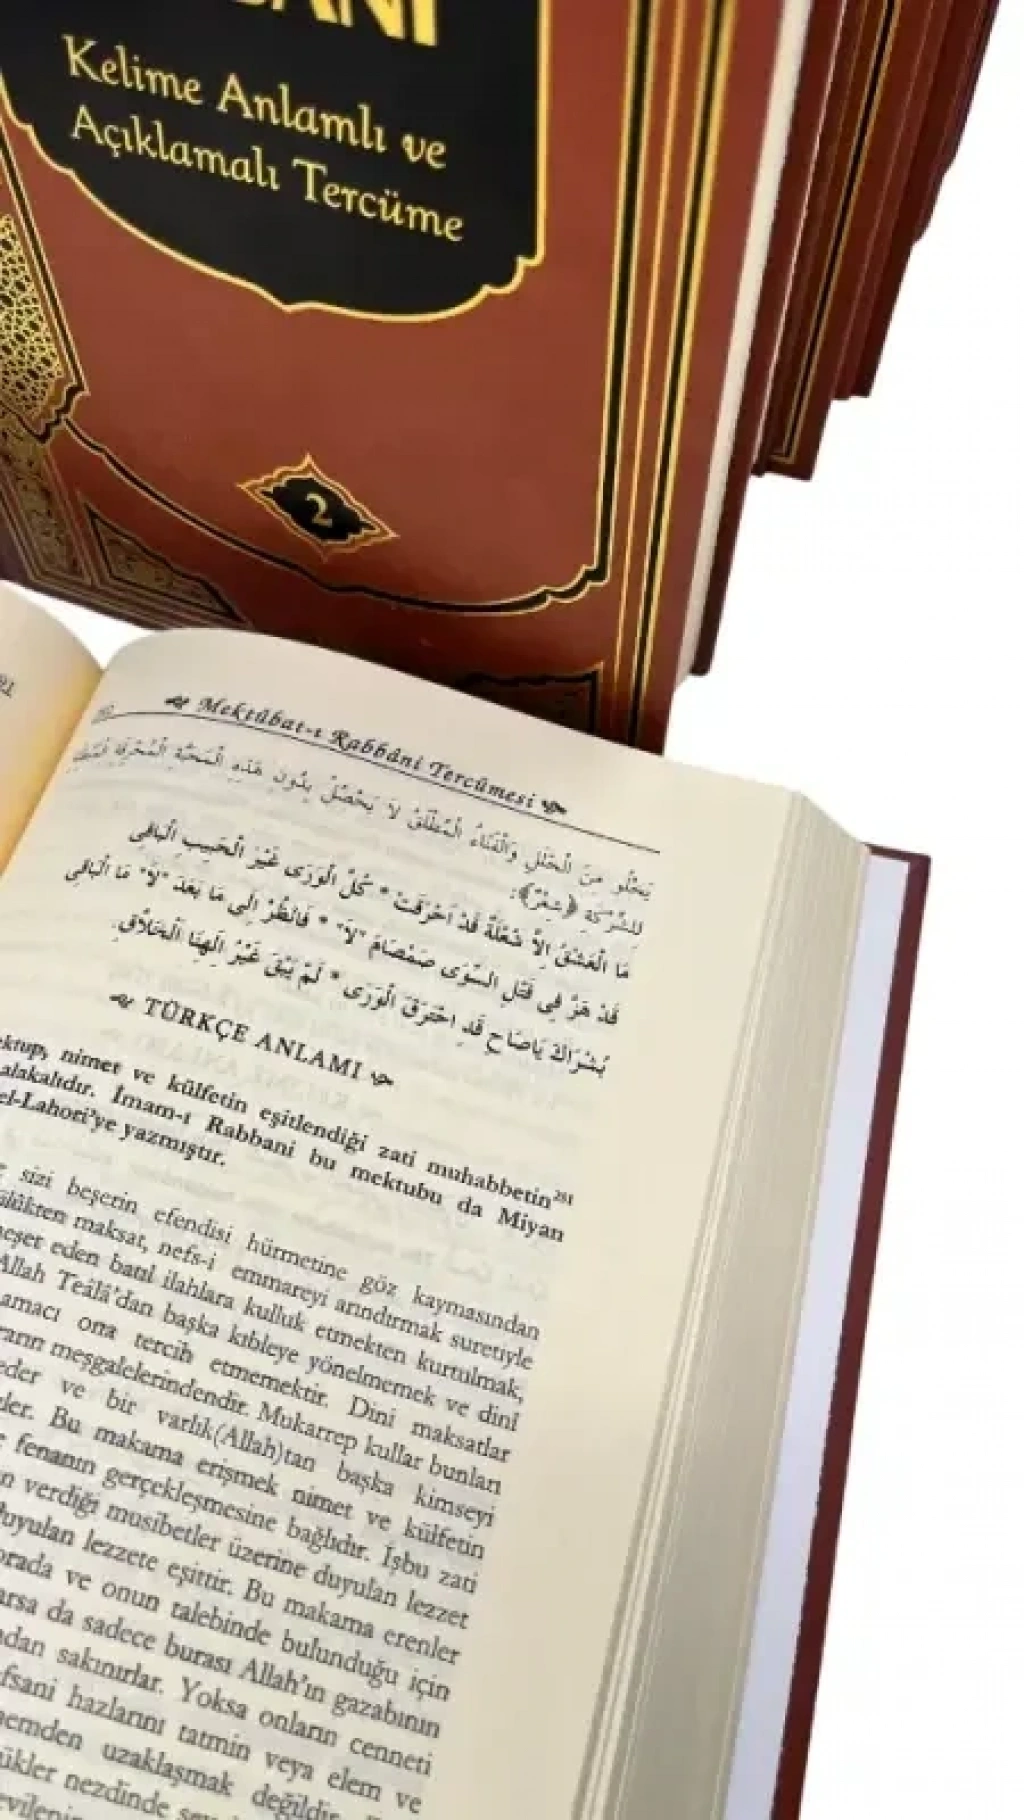 Kelime Anlamlı ve
Açıklamalı Tercüme
2
Mektûbat-ı Rabbâni Tercümesi
يَخْلُو مِنَ الْخَلَلِ وَالْفَنَاءُ الْمُطْلَقُ لاَ يَحْصُلُ بِدُونِ هَذِهِ الْمَحَبَّةِ الْمُحْرِقَةِ
لِلشِّرْكَةِ ﴿شِعْرٌ﴾:
مَا الْعَشْقُ اِلاَّ شُعْلَةٌ قَدْ اَحْرَقَتْ * كُلَّ الْوَرَى غَيْرَ الْحَبِيبِ الْبَاقِى
قَدْ هَزَّ فِى قَتْلِ السِّوَى صَمْصَامَ "لاَ" * فَانْظُرْ اِلَى مَا بَعْدَ "لاَ" مَا الْبَاقِى
بُشْرَاكَ يَاصَاحِ قَدِ احْتَرَقَ الْوَرَى * لَمْ يَبْقَ غَيْرُ اِلَهِنَا الْخَلاَّقِ.
TÜRKÇE ANLAMI
nimet ve külfetin eşitlendiği zati muhabbetin²⁸¹
alakalıdır. İmam-ı Rabbani bu mektubu da Miyan
el-Lahori'ye yazmıştır.
sizi beşerin efendisi hürmetine göz kaymasından
maksat, nefs-i emmareyi arındırmak suretiyle
eden batıl ilahlara kulluk etmekten kurtulmak,
Allah Teâlâ'dan başka kıbleye yönelmemek ve dinî
amacı ona tercih etmemektir. Dini maksatlar
meşgalelerindendir. Mukarrep kullar bunları
eder ve bir varlık(Allah)tan başka kimseyi
Bu makama erişmek nimet ve külfetin
fenanın gerçekleşmesine bağlıdır. İşbu zati
verdiği musibetler üzerine duyulan lezzet
duyulan lezzete eşittir. Bu makama erenler
orada ve onun talebinde bulunduğu için
da sadece burası Allah'ın gazabının
sakınırlar. Yoksa onların cenneti
hazlarını tatmin veya elem ve
uzaklaşmak değildir.
nezdinde